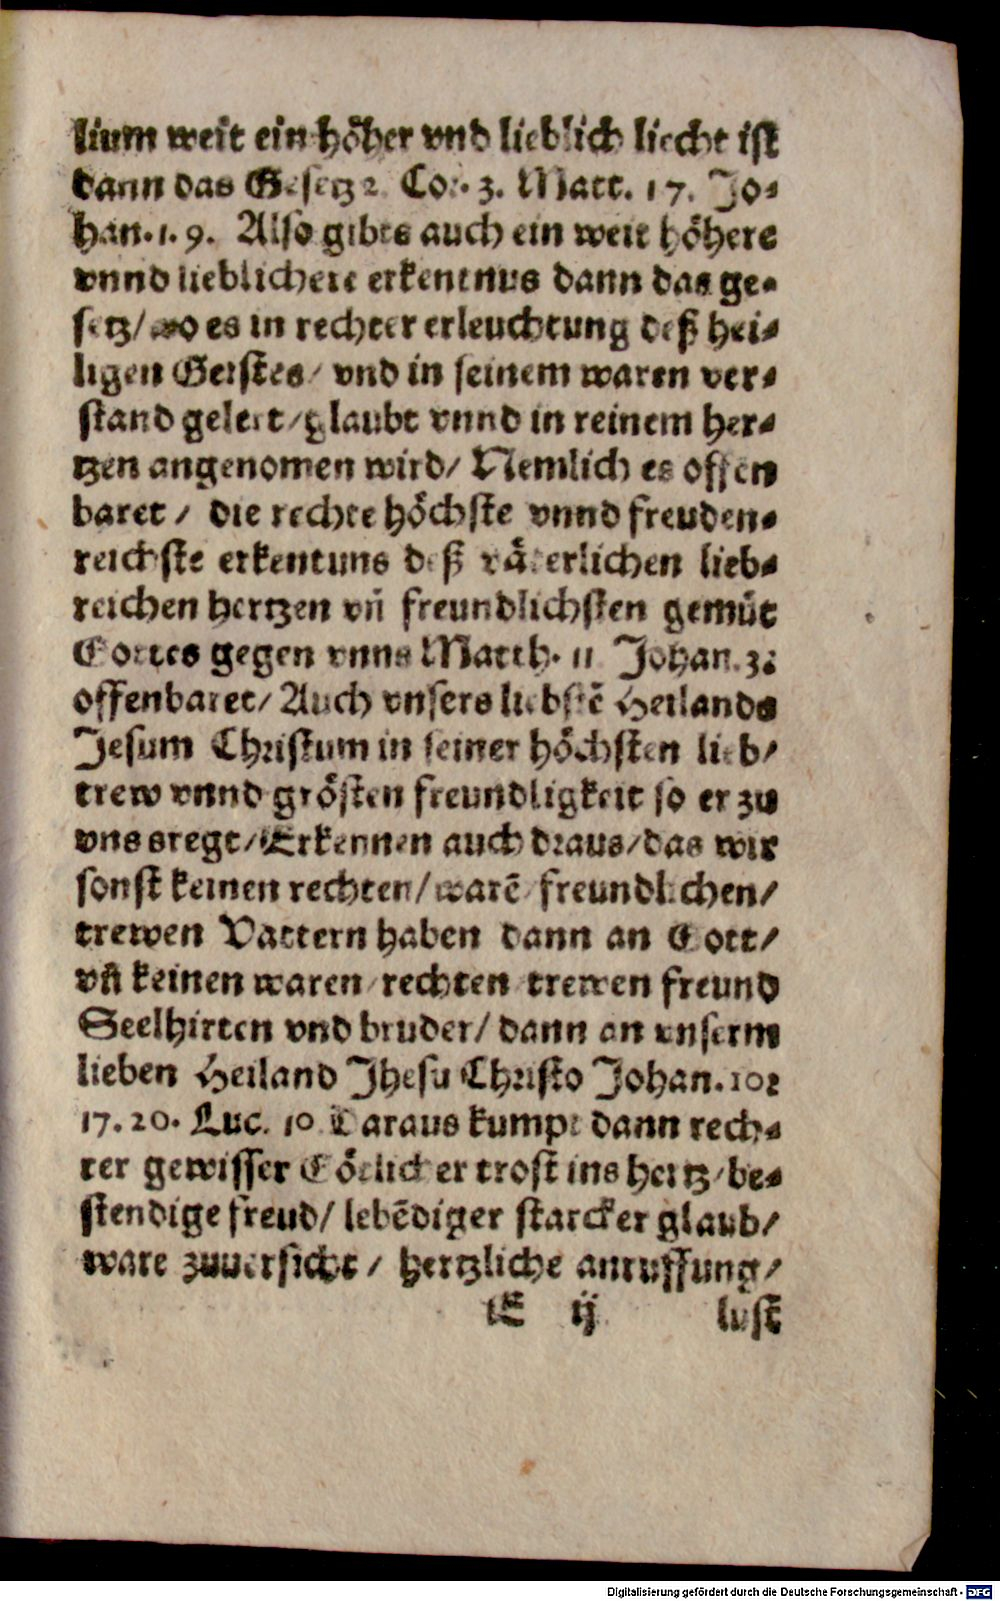 lium weit ein höher vnd lieblich liecht ist
dann das Gesetz 2. Cor. 3. Matt. 17. Jo-
han. 1. 9. Also gibts auch ein weit höhere
vnnd lieblichere erkentnus dann das ge-
setz/ wo es in rechter erleuchtung deß hei-
ligen Geistes/ vnd in seinem waren ver-
stand gelert/ glaubt vnnd in reinem her-
tzen angenomen wird/ Nemlich es offen
baret/ die rechte höchste vnnd freuden-
reichste erkentuns deß väterlichen lieb-
reichen hertzen vñ freundlichsten gemüt
Gottes gegen vnns Matth. 11 Johan. 3:
offenbaret/ Auch vnsers liebstẽ Heilands
Jesum Christum in seiner höchsten lieb/
trew vnnd grösten freundligkeit so er zu
vns sregt/ Erkennen auch draus/ das wir
sonst keinen rechten/ warẽ freundlichen/
trewen Vattern haben dann an Gott/
vñ keinen waren rechten trewen freund
Seelhirten vnd bruder/ dann an vnserm
lieben Heiland Jhesu Christo Johan. 10:
17. 20. Luc. 10 Daraus kumpt dann rech-
ter gewisser Götlicher trost ins hertz/ be-
stendige freud/ lebẽdiger starcker glaub/
ware zuuersicht/ hertzliche anruffung/
E ij lust
Digitalisierung gefördert durch die Deutsche Forschungsgemeinschaft - DFG